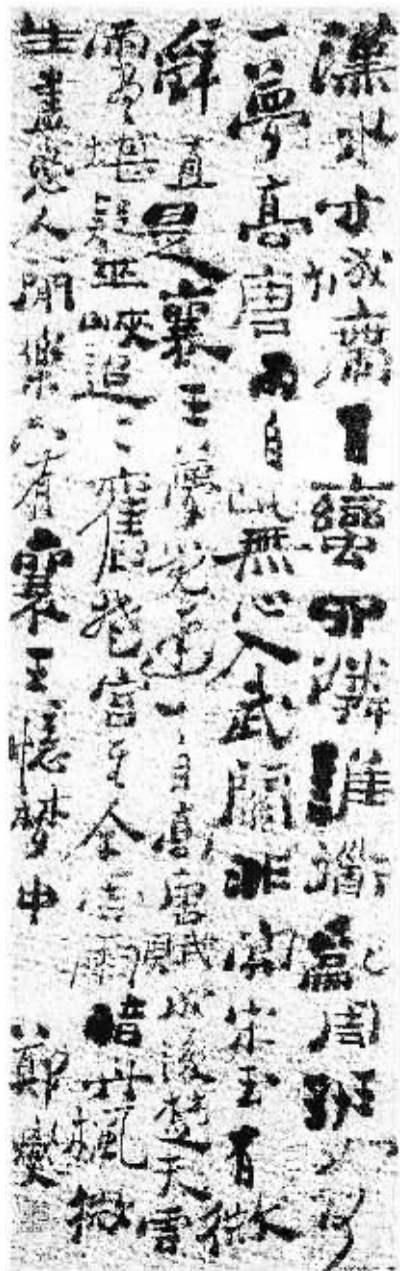 漢水方城帶百蠻四鄰誰道亂周班如何
一夢高唐雨自此無心入武關非關宋玉有微
辭直是襄王夢覺遲一自高唐賦成後楚天雲
雨盡堪疑巫峽迢迢舊楚宮至今雲雨暗丹楓微
生盡戀人間樂只有襄王憶夢中 鄭燮